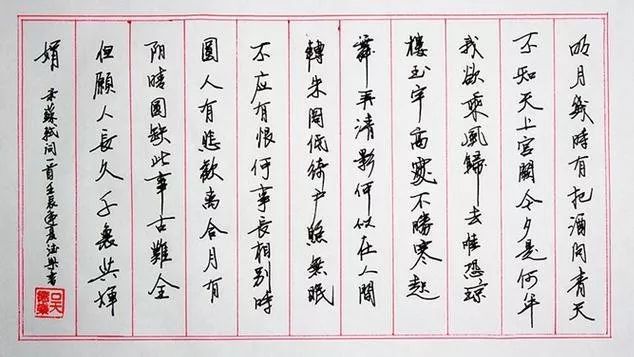 明月幾時有把酒問青天
不知天上宮闕今夕是何年
我欲乘風歸去唯恐瓊
樓玉宇高處不勝寒起
舞弄清影何似在人間
轉朱閣低綺戶照無眠
不应有恨何事長相別時
圓人有悲歡離合月有
阴晴圓缺此事古難全
但願人長久千裏共嬋
娟 录蘇軾词一首壬辰夏書